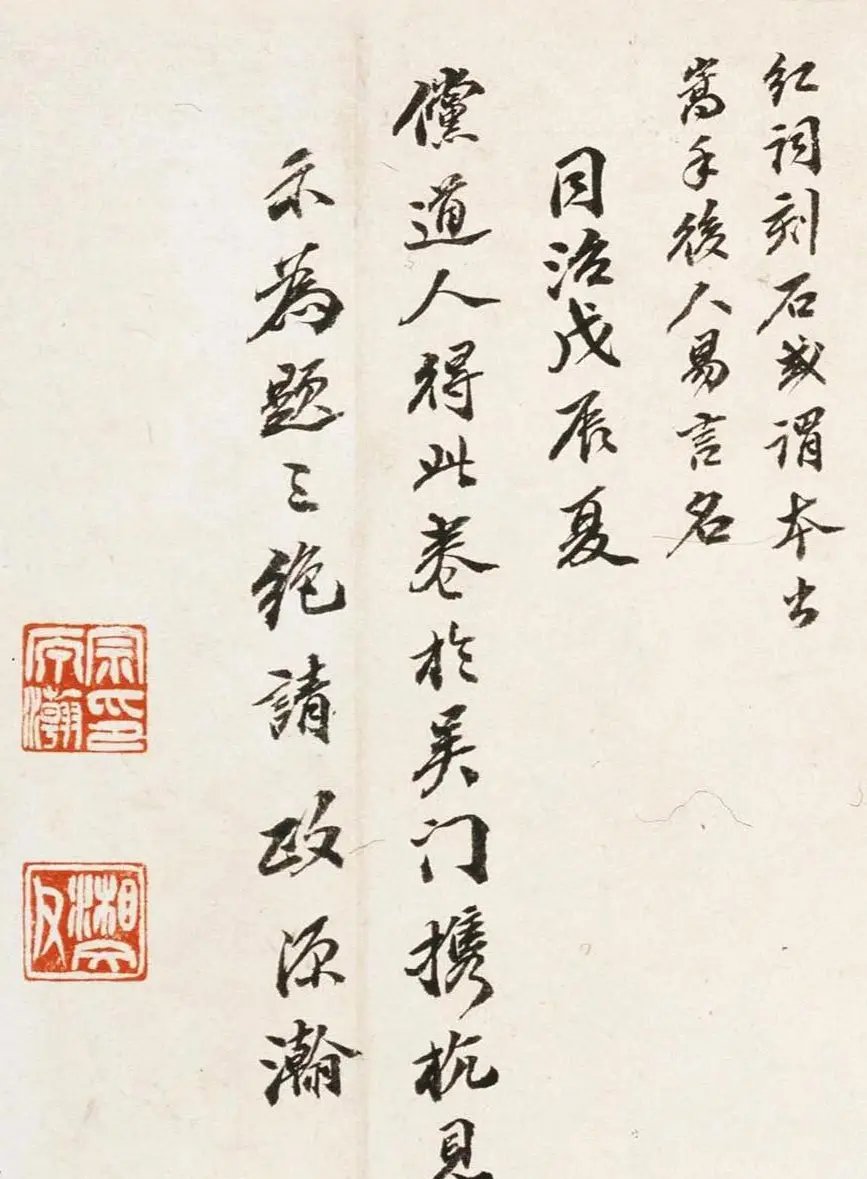 紅詞刻石或謂本出
嵩手後人易言名
同治戊辰夏
儻道人得此卷於吴門携杭見
示為題三絶請政源瀚
宗印源瀚
湘文